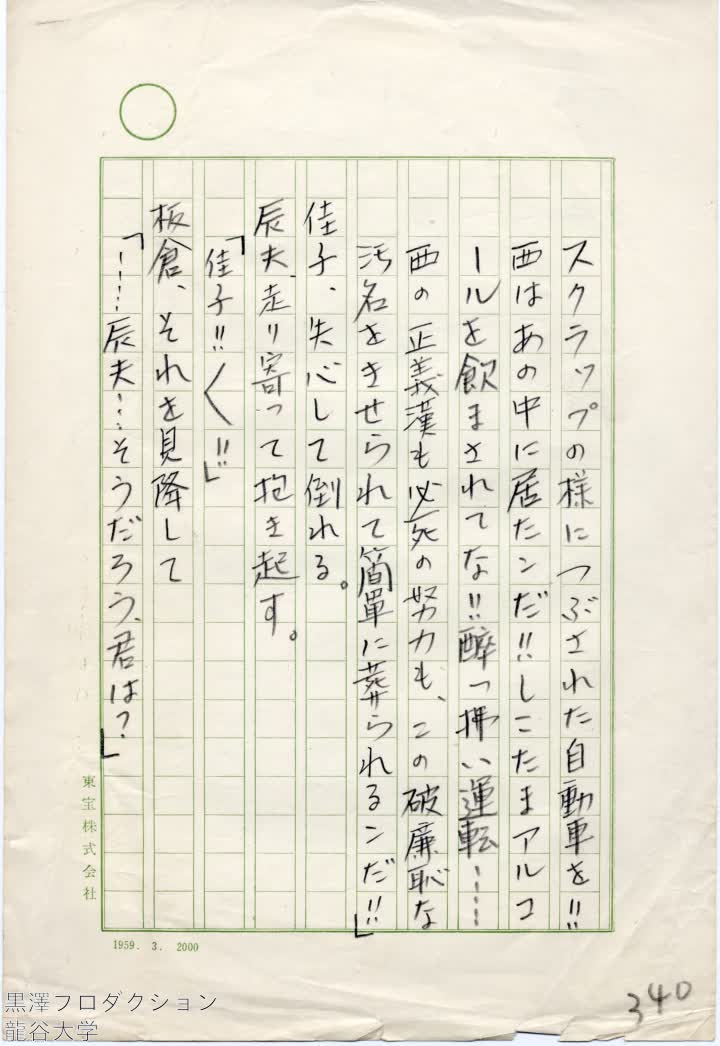 スクラップの様につぶされた自動車を!!
西はあの中に居たンだ!!しこたまアルコ
ールを飲まされてな!!醉っ拂い運転……
西の正義漢も必死の努力も、この破廉恥な
汚名をきせられて簡単に葬られるンだ!!」
佳子、失心して倒れる。
辰夫、走り寄って抱き起す。
「佳子!!〱!!」
板倉、それを見降して
「……辰夫…そうだろう、君は?」
東宝株式会社
1959. 3. 2000
340
黒澤プロダクション
龍谷大学